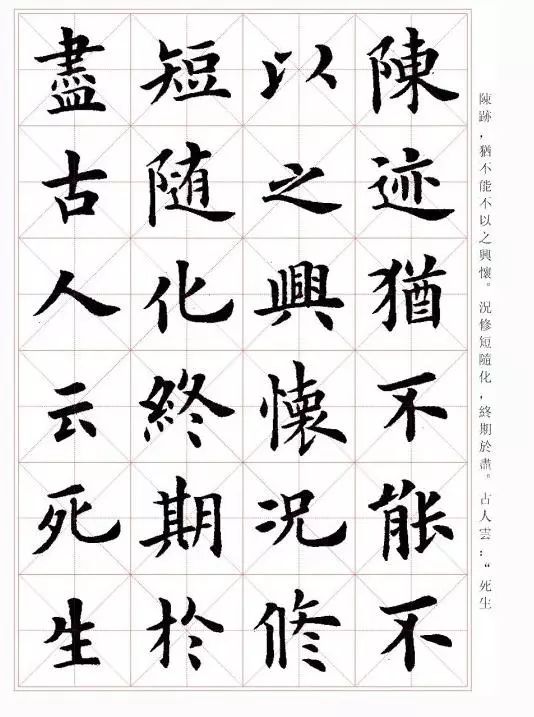 陳迹猶不能不
以之興懷况修
短随化終期於
盡古人云死生
陳跡，猶不能不以之興懷。況修短隨化，終期於盡。古人雲：“死生